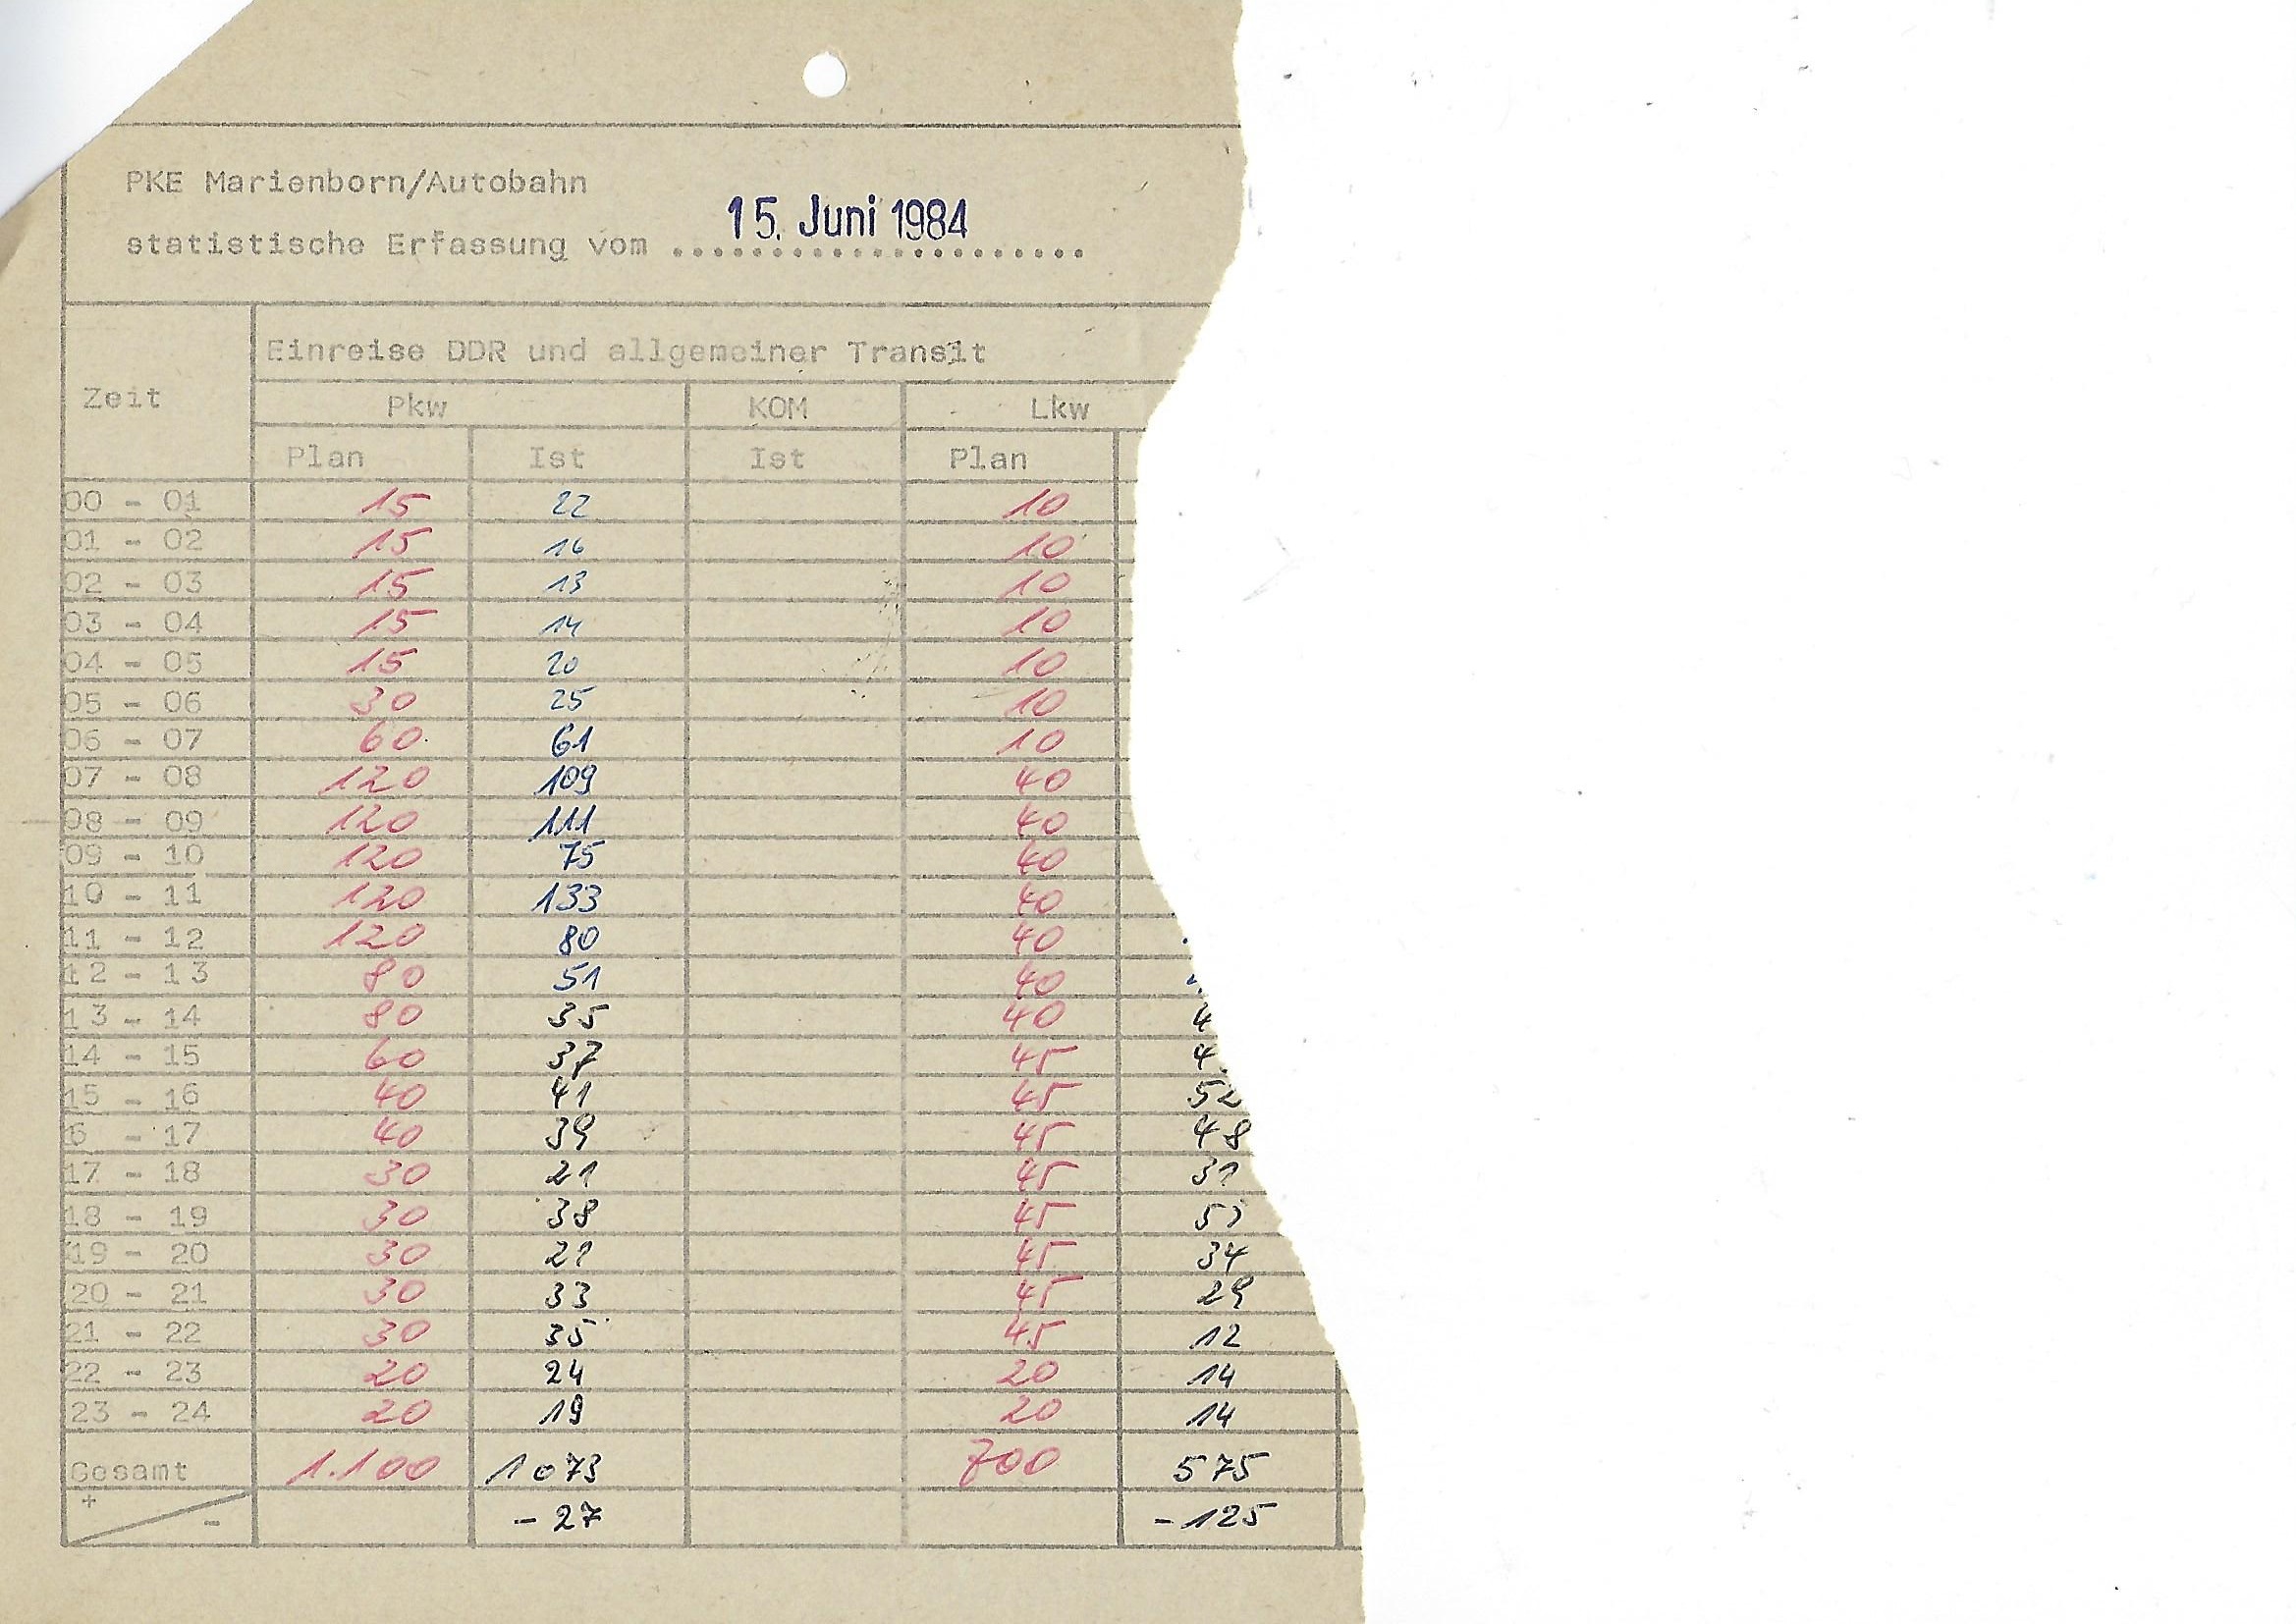 PKE Marienborn/Autobahn
15. Juni 1984
statistische Erfassung vom .....................
Einreise DDR und allgemeiner Transit
Zeit
Pkw KOM Lkw
Plan Ist Ist Plan
00 - 01 15 22 10
01 - 02 15 16 10
02 - 03 15 13 10
03 - 04 15 14 10
04 - 05 15 20 10
05 - 06 30 25 10
06 - 07 60 61 10
07 - 08 120 109 40
08 - 09 120 111 40
09 - 10 120 75 40
10 - 11 120 133 40
11 - 12 120 80 40
12 - 13 80 51 40
13 - 14 80 35 40 4
14 - 15 60 37 45 4
15 - 16 40 41 45 52
6 - 17 40 39 45 48
17 - 18 30 21 45 31
18 - 19 30 38 45
19 - 20 30 21 45 34
20 - 21 30 33 45 29
21 - 22 30 35 45 12
22 - 23 20 24 20 14
23 - 24 20 19 20 14
Gesamt 1.100 1073 700 575
+ - - 27 - 125